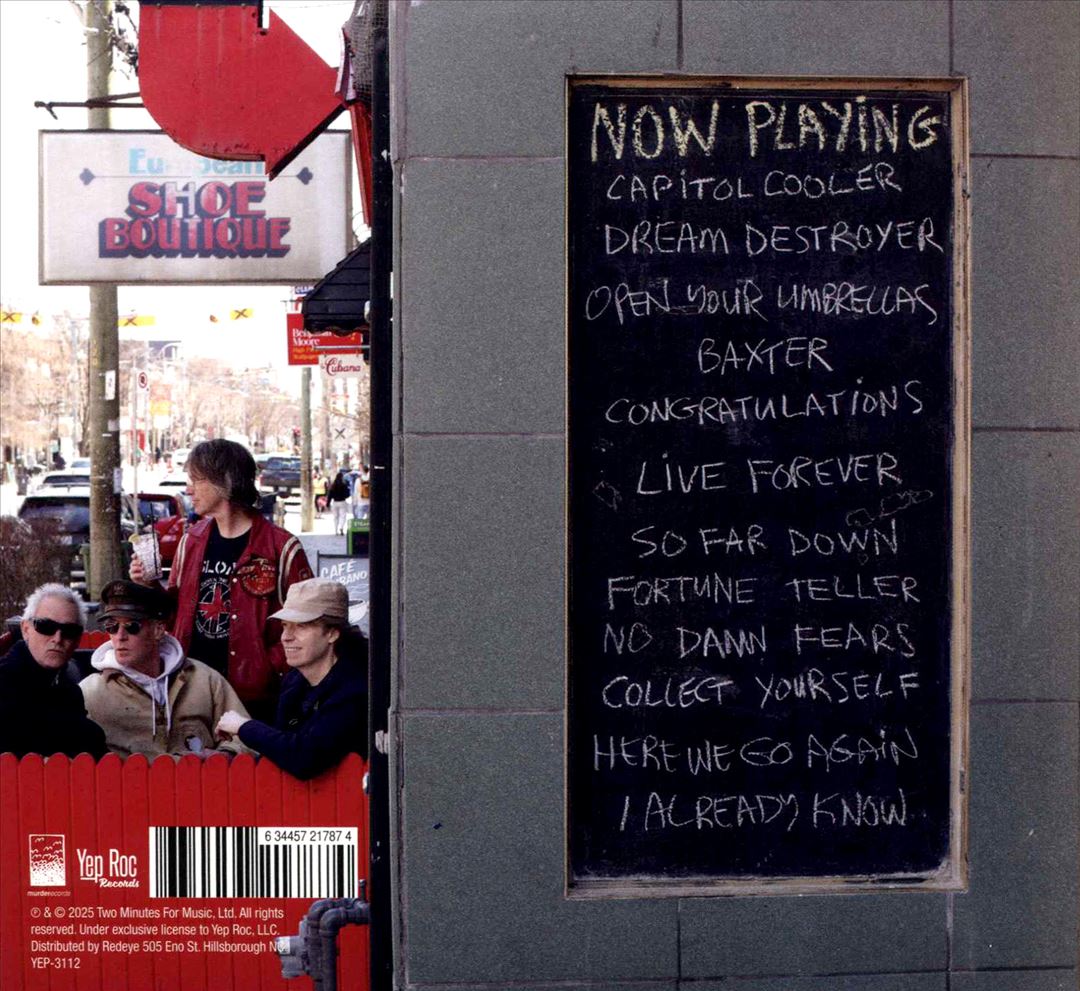 SHOE
BOUTIQUE
Moore
Cubana
CAFE
NOW PLAYING
CAPITOL COOLER
DREAM DESTROYER
OPEN YOUR UMBRELLAS
BAXTER
CONGRATULATIONS
LIVE FOREVER
SO FAR DOWN
FORTUNE TELLER
NO DAMN FEARS
COLLECT YOURSELF
HERE WE GO AGAIN
I ALREADY KNOW
6 34457 21787 4
murderecords
Yep Roc
Records
℗ & © 2025 Two Minutes For Music, Ltd. All rights
reserved. Under exclusive license to Yep Roc, LLC.
Distributed by Redeye 505 Eno St. Hillsborough
YEP-3112